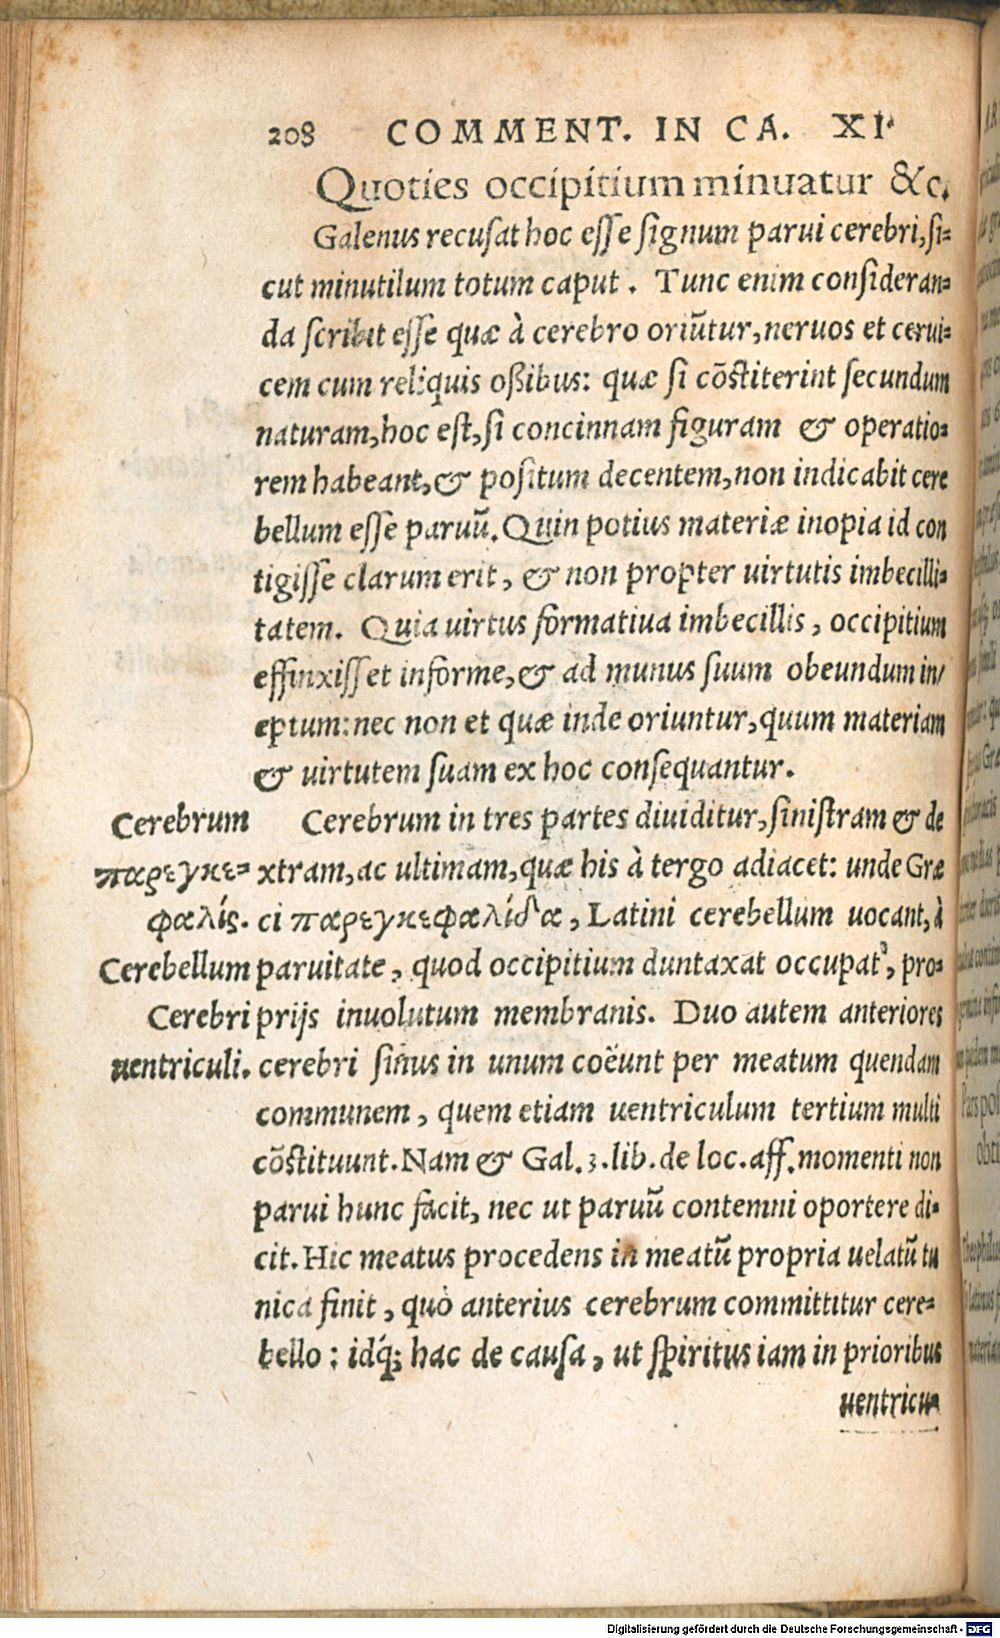 208 COMMENT. IN CA. XI.
Quoties occipitium minuatur &c.
Galenus recusat hoc esse signum parui cerebri, si-
cut minutilum totum caput. Tunc enim consideran-
da scribit esse quæ à cerebro oriũtur, neruos et cerui-
cem cum reliquis oßibus: quæ si cõstiterint secundum
naturam, hoc est, si concinnam figuram & operatio-
rem habeant, & positum decentem, non indicabit cere
bellum esse paruũ. Quin potius materiæ inopia id con
tigisse clarum erit, & non propter uirtutis imbecilli-
tatem. Quia uirtus formatiua imbecillis, occipitium
effinxisset informe, & ad munus suum obeundum in/
eptum: nec non et quæ inde oriuntur, quum materiam
& uirtutem suam ex hoc consequantur.
Cerebrum Cerebrum in tres partes diuiditur, sinistram & de
παρεγκε- xtram, ac ultimam, quæ his à tergo adiacet: unde Græ
φαλίς. ci παρεγκεφαλίδα, Latini cerebellum uocant, à
Cerebellum paruitate, quod occipitium duntaxat occupat, pro-
Cerebri prijs inuolutum membranis. Duo autem anteriores
uentriculi. cerebri sinus in unum coëunt per meatum quendam
communem, quem etiam uentriculum tertium multi
cõstituunt. Nam & Gal. 3. lib. de loc. aff. momenti non
parui hunc facit, nec ut paruũ contemni oportere di-
cit. Hic meatus procedens in meatũ propria uelatũ tu
nica finit, quò anterius cerebrum committitur cere-
bello: idq́; hac de causa, ut spiritus iam in prioribus
uentricu-
Digitalisierung gefördert durch die Deutsche Forschungsgemeinschaft - DFG